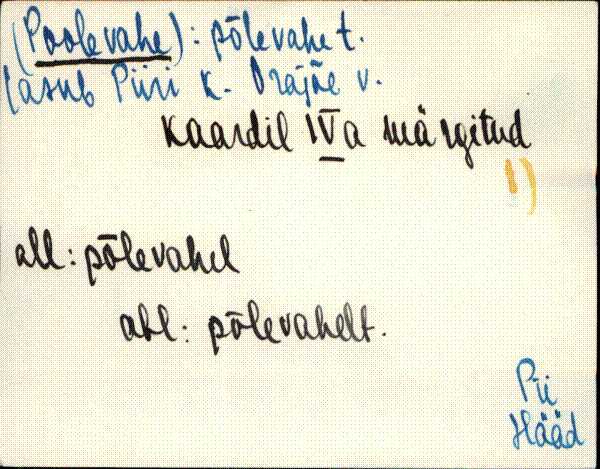 (Poolevahe): põlevahe t.
(asub Piiri k. Orajõe v.
Kaardil IVa märgitud
1)
all: põlevahel
abl: põlevahelt.
Pii
Hääd